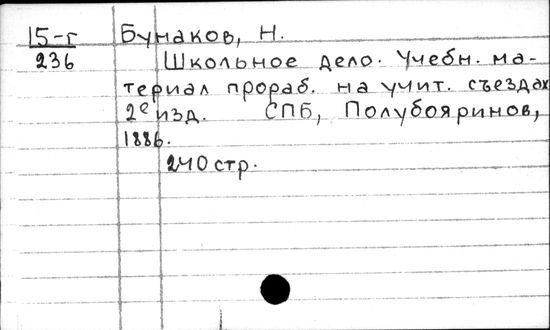 15-г Бунаков, Н.
236 Школьное дело. Учебн. ма-
териал прораб. на учит. съездах
2е изд. СПБ, Полубояринов,
1886.
240 стр.